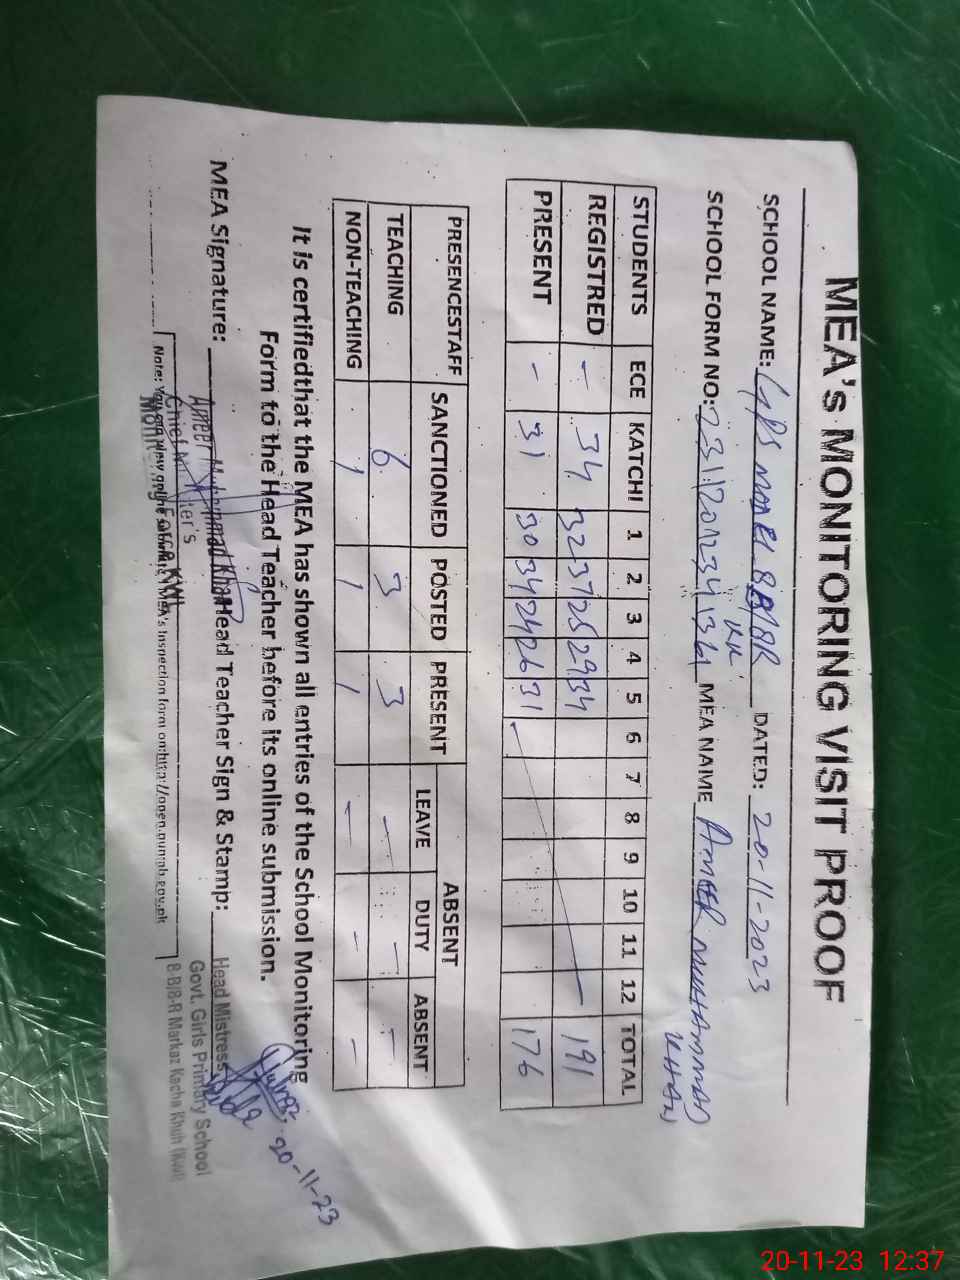 MEA's MONITORING VISIT PROOF
SCHOOL NAME: MODEL 8B/8R DATED: 20-11-2023
KK
SCHOOL FORM NO: MEA NAME AMEER MUHAMMAD
KHAN
STUDENTS ECE KATCHI 1 2 3 4 5 6 7 8 9 10 11 12 TOTAL
REGISTRED - 34 32 37 25 29 34 191
PRESENT - 31 30 34 24 26 31 176
PRESENCESTAFF SANCTIONED POSTED PRESENT ABSENT
LEAVE DUTY ABSENT
TEACHING 6 3 3 - - -
NON-TEACHING 1 1 1 - - -
It is certifiedthat the MEA has shown all entries of the School Monitoring
Form to the Head Teacher before its online submission.
20-11-23
MEA Signature: Head Teacher Sign & Stamp:
Ameer Muhammad Khan
Chief Minister's
Monitoring Force KWL
Head Mistress
Govt. Girls Primary School
8-B/8-R Markaz Kacha Khuh (KWL)
Note: You can view online submitted MEA's Inspection form on:http://open.punjab.gov.pk
20-11-23 12:37